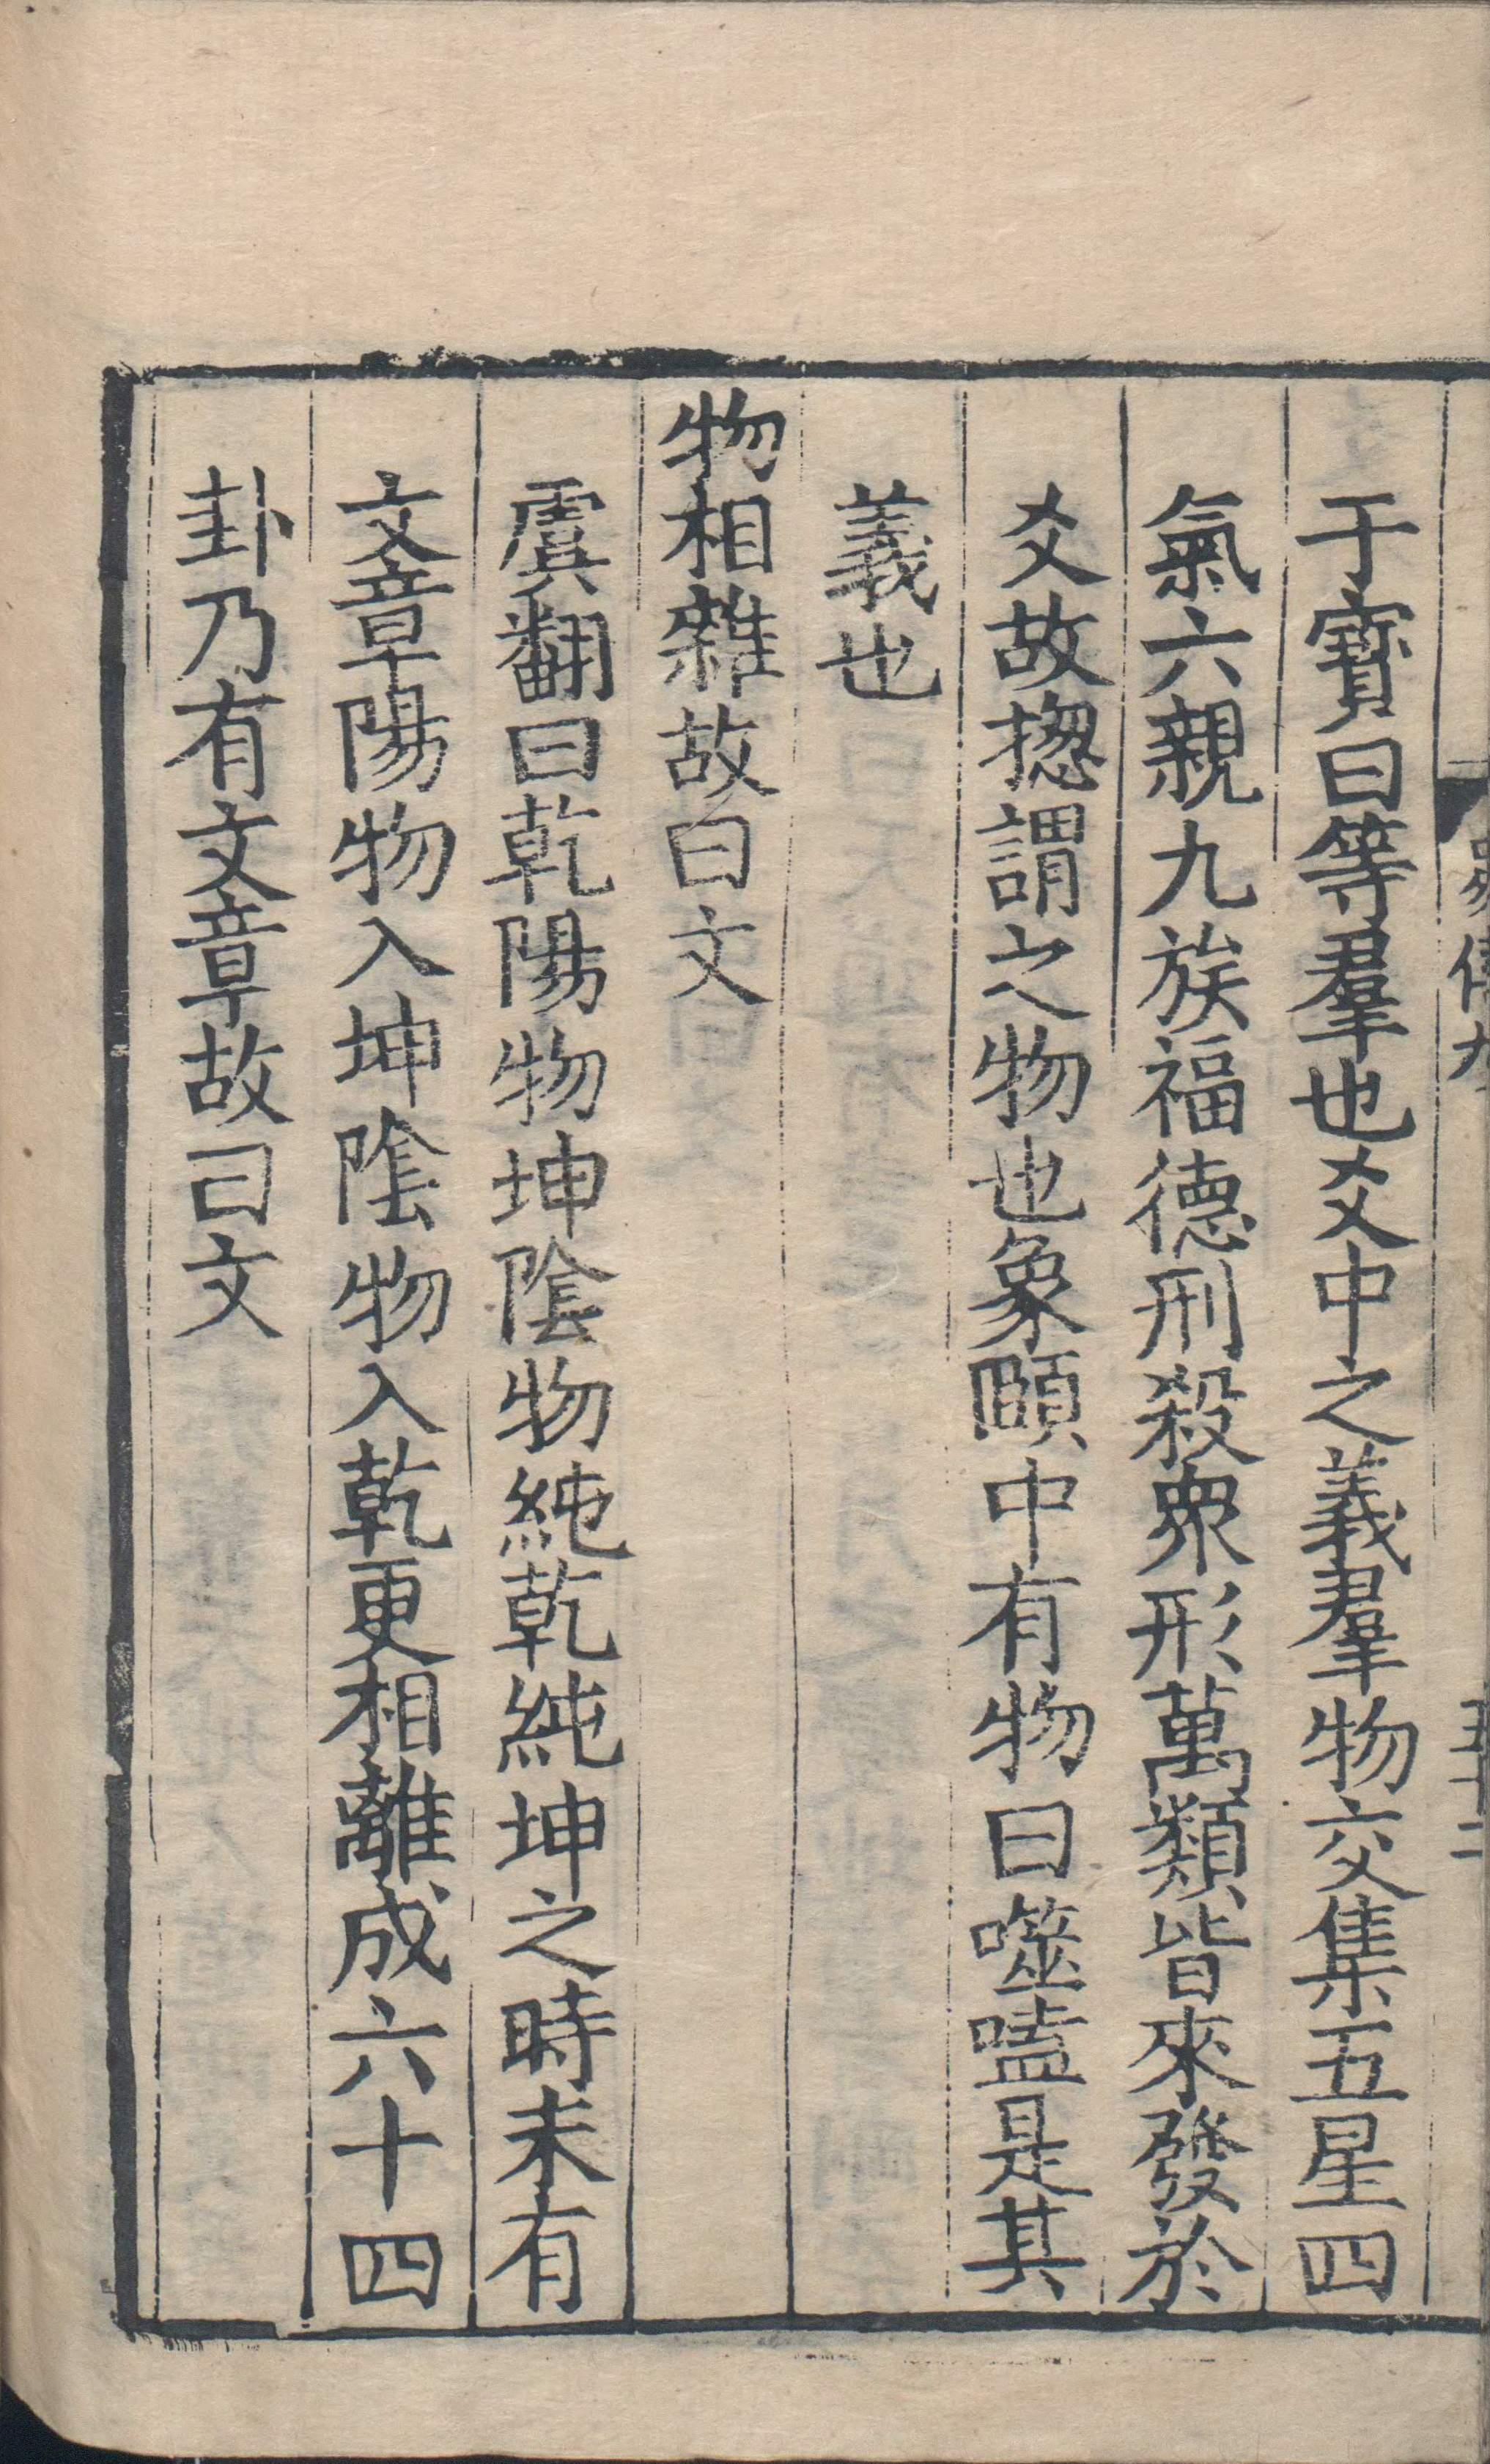 易傳九
五十二
于寶曰等羣也爻中之義羣物交集五星四
氣六親九族福德刑殺衆形萬類皆來發於
爻故揔謂之物也象頤中有物曰噬嗑是其
義也
物相雜故曰文
虞翻曰乾陽物坤陰物純乾純坤之時未有
文章陽物入坤陰物入乾更相離成六十四
卦乃有文章故曰文